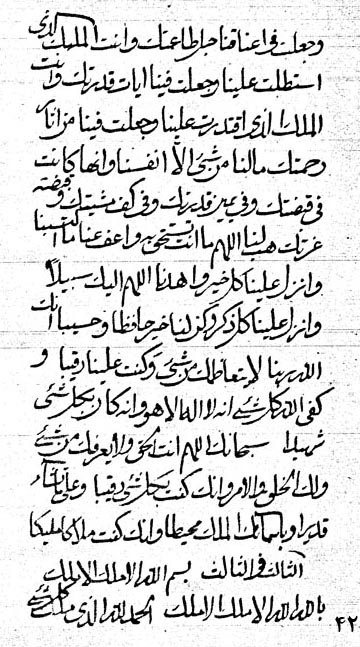 وجعلت في اعناقنا حبل طاعتك وانت الملك الذي
استطلت علينا وجعلت فينا ايات قدرتك وانت
الملك الذي اقتدرت علينا وجعلت فينا من اثار
رحمتك مالنا من شئ الا انفسنا وانها كانت
في قبضتك وفي يمين قدرتك وفي كف مشيتك وقبضة
عزتك هب لنا اللهم ما انت تستحق به واعف عنا ما اكتسبنا
وانزل علينا كل خير واهدنا اللهم اليك سبيلا
وانزل علينا كل ذكر وكن لنا خير حافظا وحسيبا انك
الله ربنا لا يتعاظمك من شئ وكنت علينا رقيبا و
كفى الله كل شئ انه لا اله الا هو وانه كان بكل شئ
شهيدا سبحانك اللهم انت الحق ولا يعزب من شئ
ولك الخلق والامر وانك كنت بكل شئ رقيبا وعلى ما تشاء
قديرا وباسمائك الملك محيطا وانك كنت ملاكا مليكا
الثالث في الثالث بسم الله الاملك الاملك
بالله الله الاملك الاملك الحمد لله الذي ملك كل شئ
٤٢